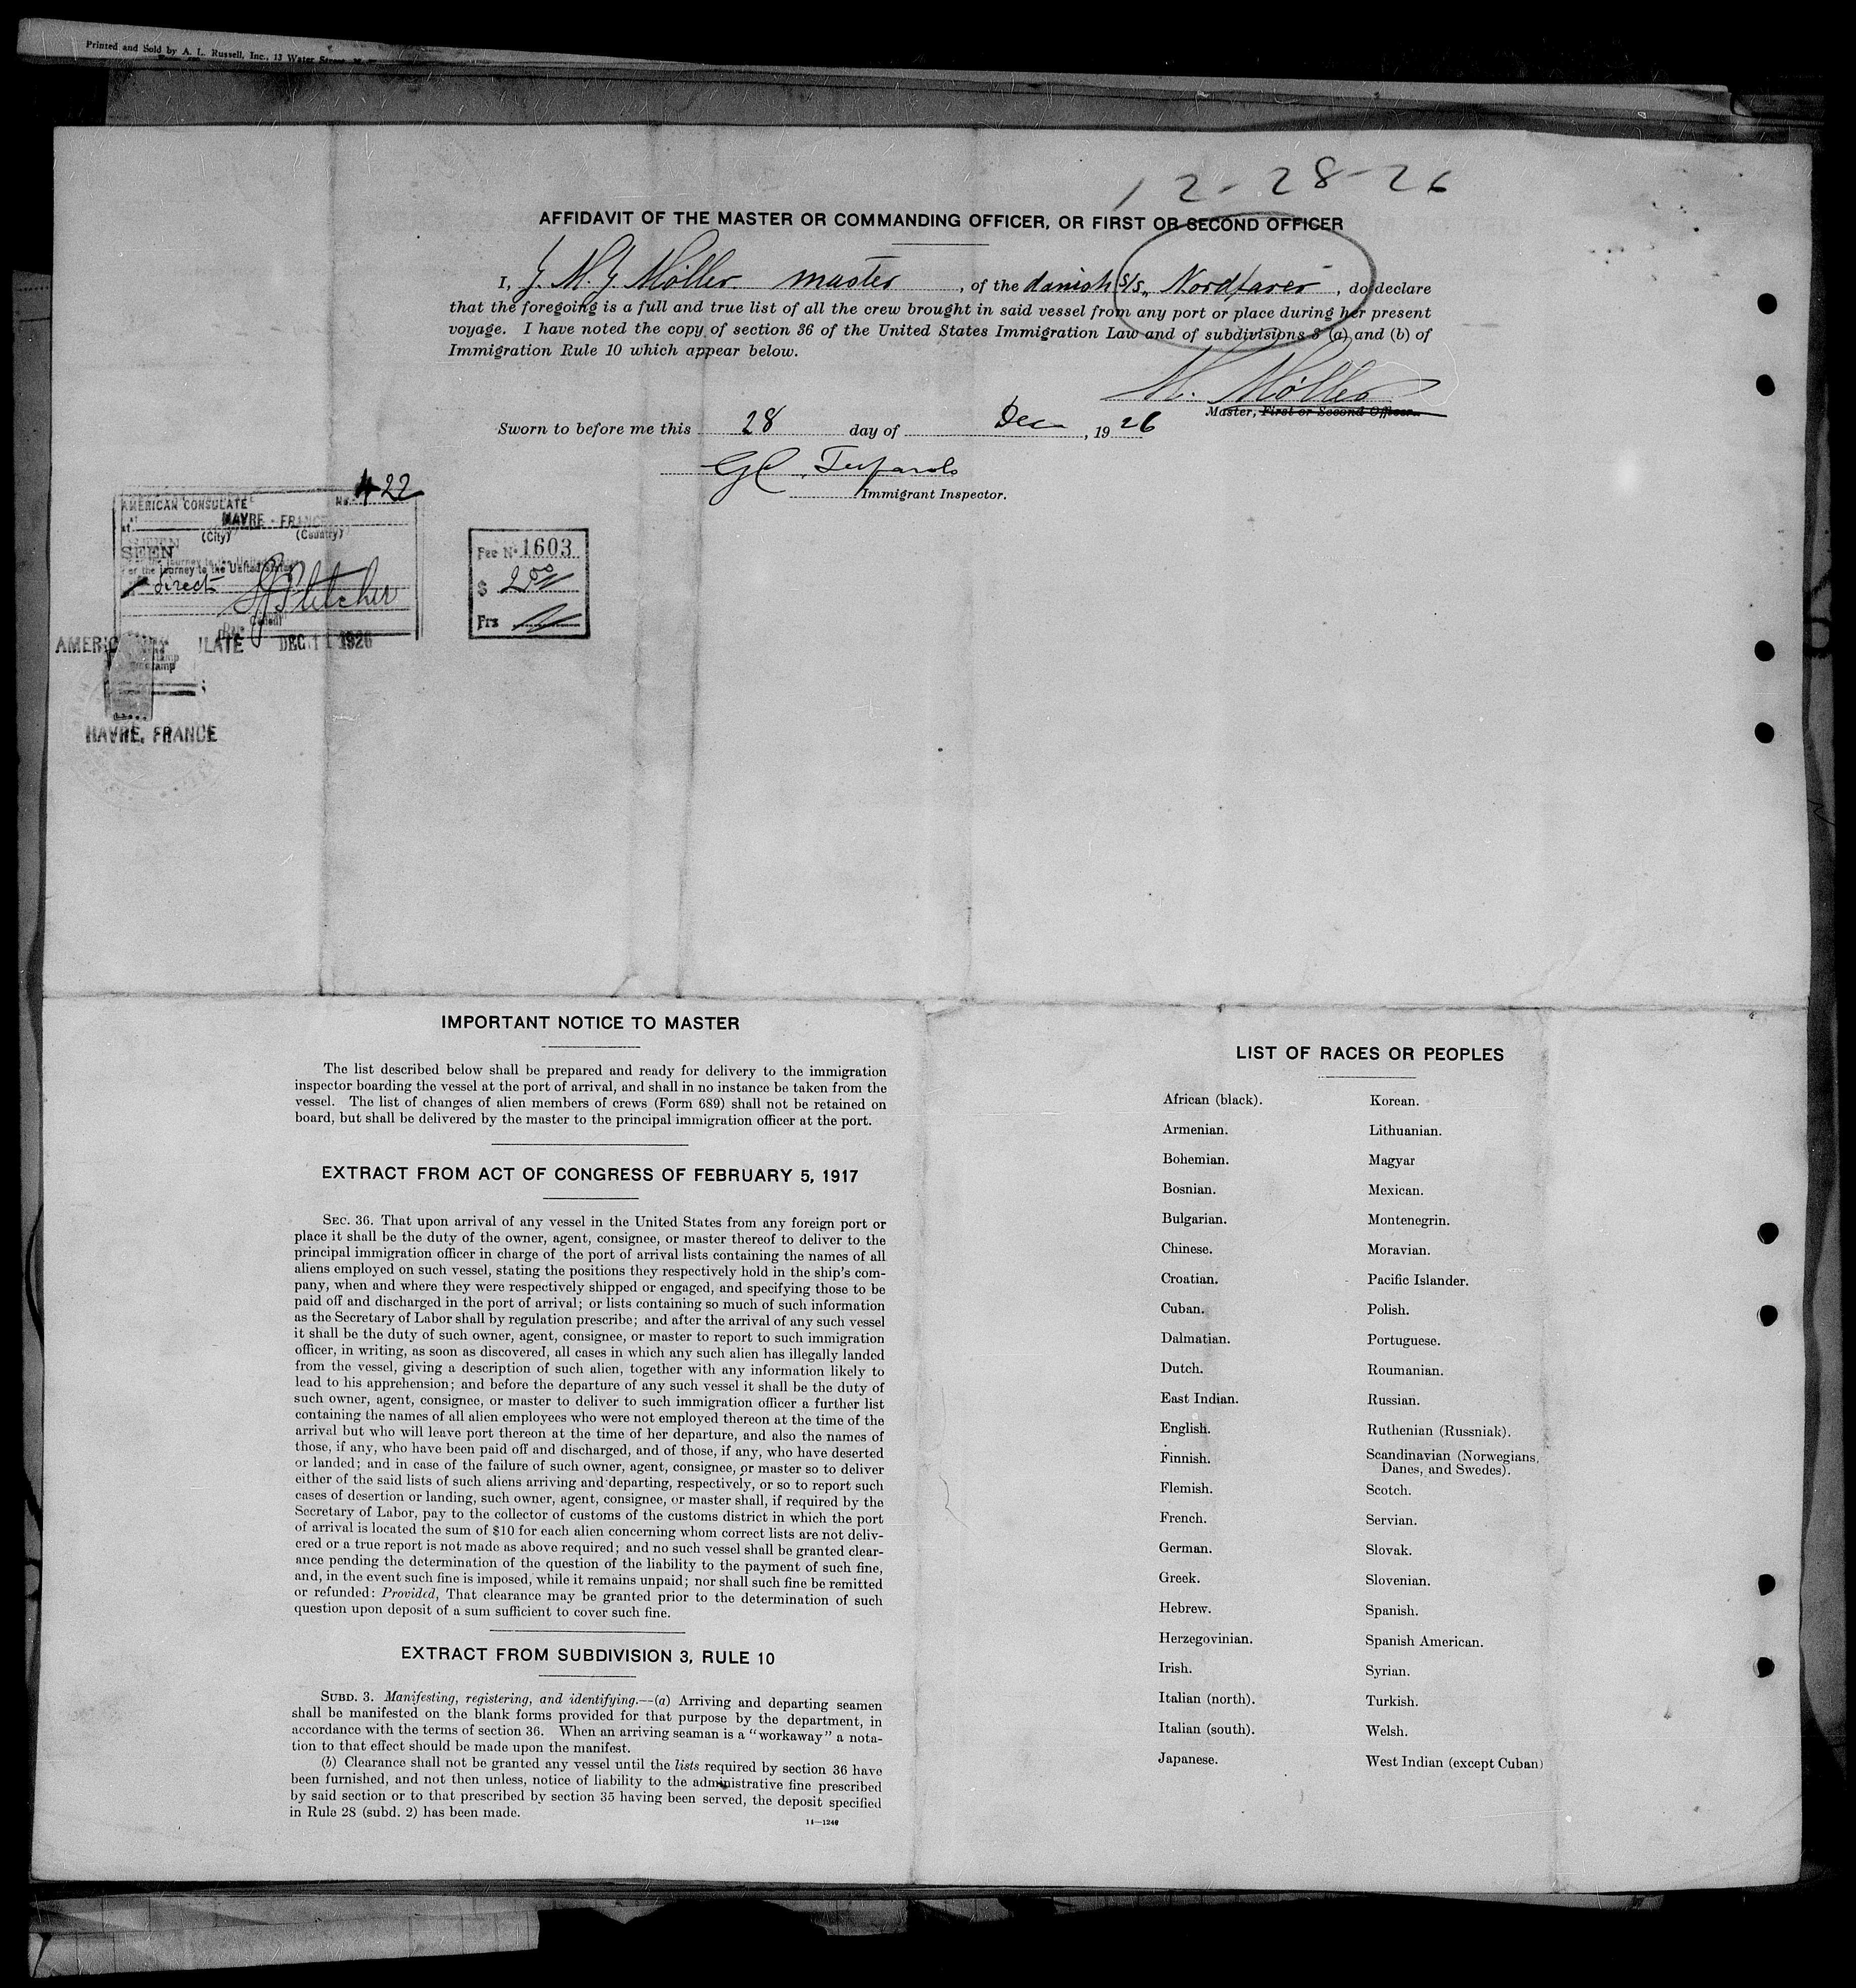 Printed and Sold by A. L. Russell, Inc., 13 Water
12-28-26
AFFIDAVIT OF THE MASTER OR COMMANDING OFFICER, OR FIRST OR SECOND OFFICER
I, J. M. J Møller master, of the danish s/s „Nordfarer", do declare
that the foregoing is a full and true list of all the crew brought in said vessel from any port or place during her present
voyage. I have noted the copy of section 36 of the United States Immigration Law and of subdivisions 3 (a) and (b) of
Immigration Rule 10 which appear below.
M. Møller
Master, First or Second Officer.
Sworn to before me this 28 day of Dec, 1926
Immigrant Inspector.
No. 422
AMERICAN CONSULATE
at HAVRE - FRANCE
(City) (Country)
SEEN
For the journey to the United States
direct
Pletcher
Consul
AMERICAN CONSULATE DEC 11 1926
HAVRE, FRANCE
Fee No. 1603
$ 2.00
Frs
IMPORTANT NOTICE TO MASTER
The list described below shall be prepared and ready for delivery to the immigration
inspector boarding the vessel at the port of arrival, and shall in no instance be taken from the
vessel. The list of changes of alien members of crews (Form 689) shall not be retained on
board, but shall be delivered by the master to the principal immigration officer at the port.
EXTRACT FROM ACT OF CONGRESS OF FEBRUARY 5, 1917
SEC. 36. That upon arrival of any vessel in the United States from any foreign port or
place it shall be the duty of the owner, agent, consignee, or master thereof to deliver to the
principal immigration officer in charge of the port of arrival lists containing the names of all
aliens employed on such vessel, stating the positions they respectively hold in the ship's com-
pany, when and where they were respectively shipped or engaged, and specifying those to be
paid off and discharged in the port of arrival; or lists containing so much of such information
as the Secretary of Labor shall by regulation prescribe; and after the arrival of any such vessel
it shall be the duty of such owner, agent, consignee, or master to report to such immigration
officer, in writing, as soon as discovered, all cases in which any such alien has illegally landed
from the vessel, giving a description of such alien, together with any information likely to
lead to his apprehension; and before the departure of any such vessel it shall be the duty of
such owner, agent, consignee, or master to deliver to such immigration officer a further list
containing the names of all alien employees who were not employed thereon at the time of the
arrival but who will leave port thereon at the time of her departure, and also the names of
those, if any, who have been paid off and discharged, and of those, if any, who have deserted
or landed; and in case of the failure of such owner, agent, consignee, or master so to deliver
either of the said lists of such aliens arriving and departing, respectively, or so to report such
cases of desertion or landing, such owner, agent, consignee, or master shall, if required by the
Secretary of Labor, pay to the collector of customs of the customs district in which the port
of arrival is located the sum of $10 for each alien concerning whom correct lists are not deliv-
ered or a true report is not made as above required; and no such vessel shall be granted clear-
ance pending the determination of the question of the liability to the payment of such fine,
and, in the event such fine is imposed, while it remains unpaid; nor shall such fine be remitted
or refunded: Provided, That clearance may be granted prior to the determination of such
question upon deposit of a sum sufficient to cover such fine.
EXTRACT FROM SUBDIVISION 3, RULE 10
SUBD. 3. Manifesting, registering, and identifying.—(a) Arriving and departing seamen
shall be manifested on the blank forms provided for that purpose by the department, in
accordance with the terms of section 36. When an arriving seaman is a "workaway" a nota-
tion to that effect should be made upon the manifest.
(b) Clearance shall not be granted any vessel until the lists required by section 36 have
been furnished, and not then unless, notice of liability to the administrative fine prescribed
by said section or to that prescribed by section 35 having been served, the deposit specified
in Rule 28 (subd. 2) has been made.
14—1246
LIST OF RACES OR PEOPLES
African (black).
Armenian.
Bohemian.
Bosnian.
Bulgarian.
Chinese.
Croatian.
Cuban.
Dalmatian.
Dutch.
East Indian.
English.
Finnish.
Flemish.
French.
German.
Greek.
Hebrew.
Herzegovinian.
Irish.
Italian (north).
Italian (south).
Japanese.
Korean.
Lithuanian.
Magyar
Mexican.
Montenegrin.
Moravian.
Pacific Islander.
Polish.
Portuguese.
Roumanian.
Russian.
Ruthenian (Russniak).
Scandinavian (Norwegians,
Danes, and Swedes).
Scotch.
Servian.
Slovak.
Slovenian.
Spanish.
Spanish American.
Syrian.
Turkish.
Welsh.
West Indian (except Cuban)